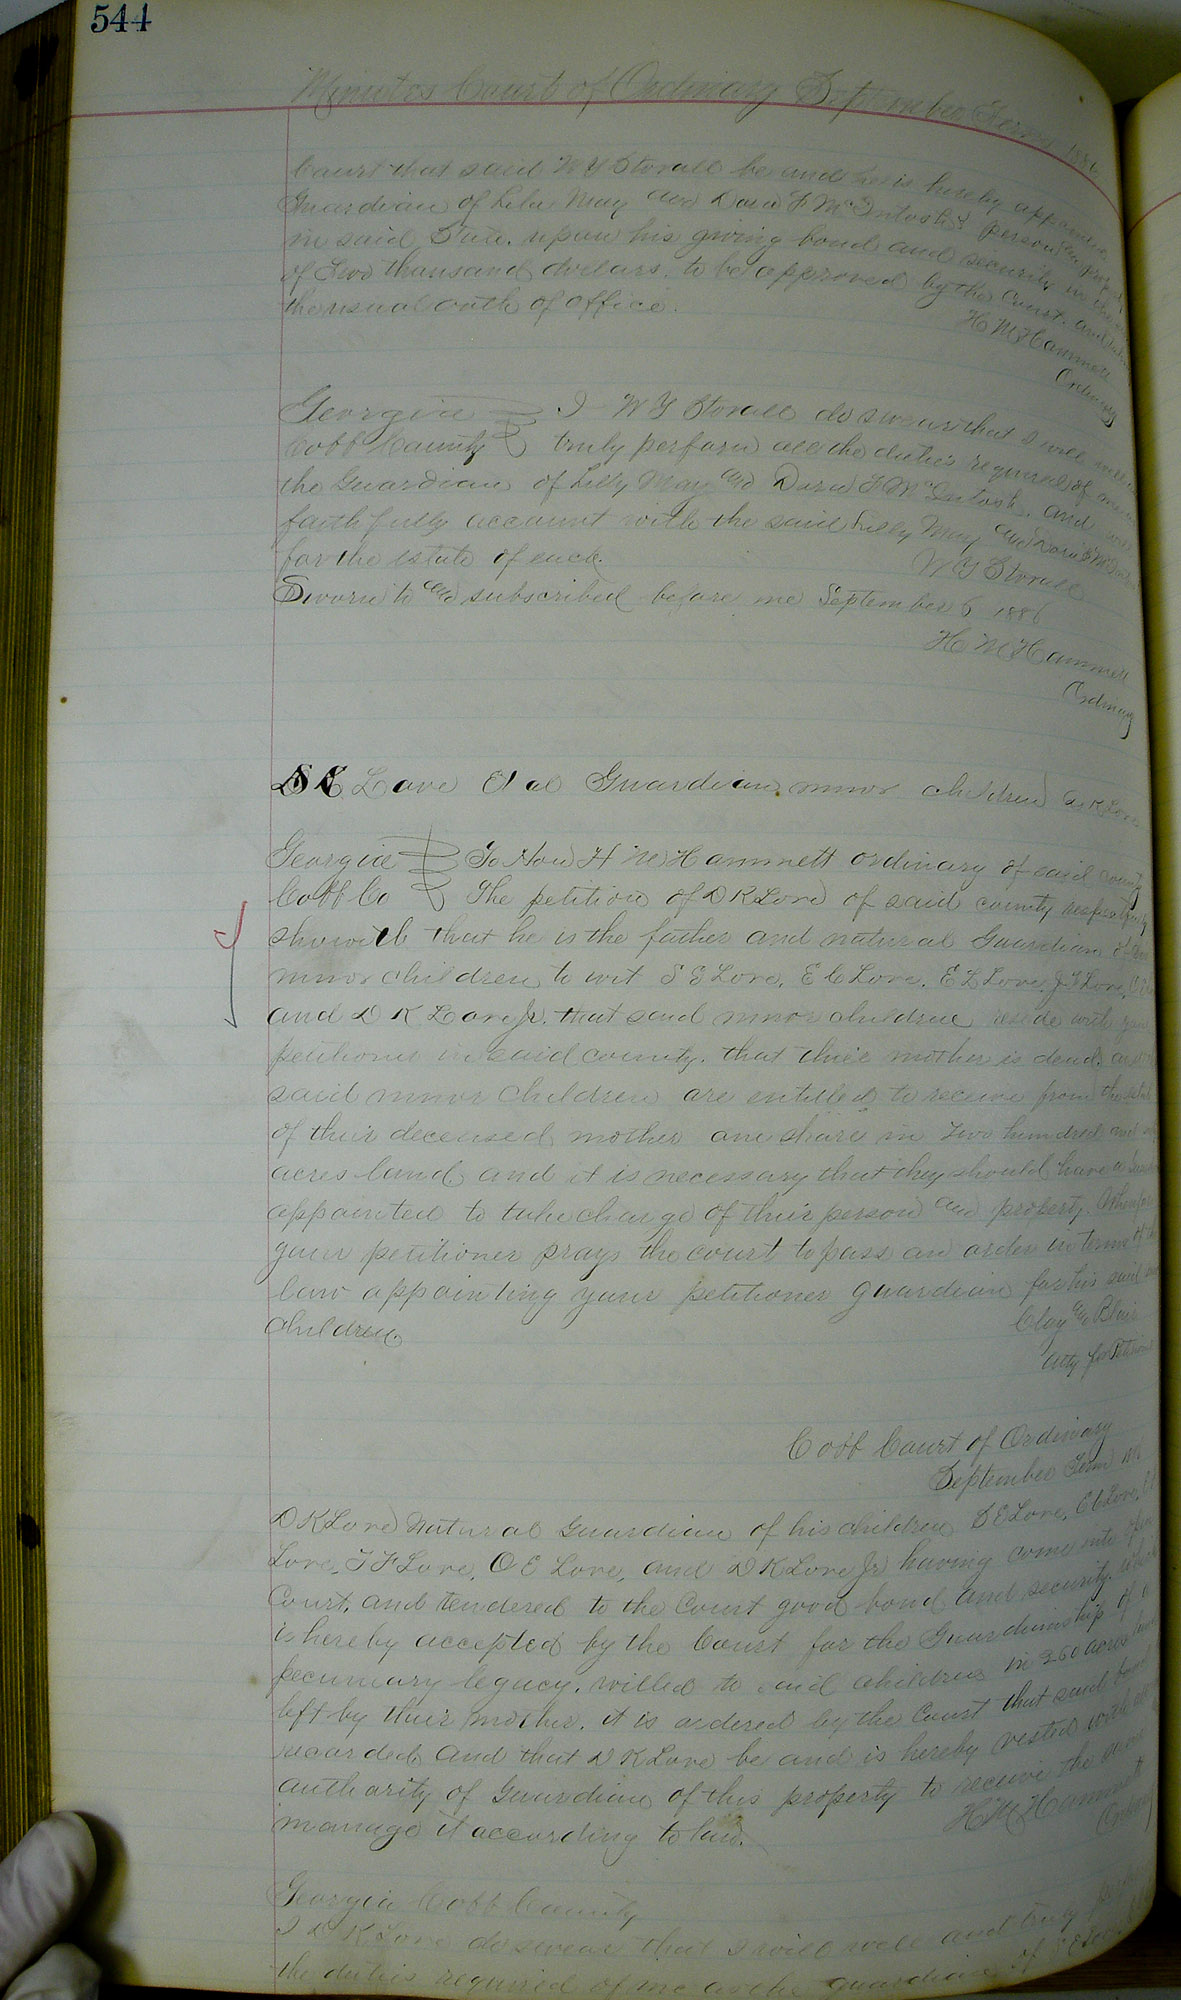 544
Minutes Court of Ordinary September Term 1886
Court that said W Y Storall be and he is hereby appointed
Guardian of Lela May and Dora F McIntosh's person and
in said State. upon his giving bond and security in
of Two thousand dollars. to be approved by the Court. and
the usual oath of office.
H M Hammett
Ordinary
Georgia I W Y Storall do swear that I will well
Cobb County truly perform all the duties required of me
the Guardian of Lilly May and Dora F McIntosh. and will
faithfully account with the said Lilly May and Dora F McIntosh
for the estate of each.
W Y Storall
Sworn to and subscribed before me September 6 1886
H M Hammett
Ordinary
D K Love Et al Guardian minor children D K Love
Georgia To Hon H M Hammett ordinary of said county
Cobb Co The petition of D K Love of said county respectfully
showeth that he is the father and natural Guardian of
minor children to wit S E Love, E C Love, E L Love, J F Love,
and D K Love Jr. that said minor children reside with your
petitioner in said county. that their mother is dead. and
said minor children are entitled to receive from the estate
of their deceased mother one share in Two hundred and
acres land and it is necessary that they should have a
appointed to take charge of their person and property. Wherefore
your petitioner prays the court to pass an order in terms of the
law appointing your petitioner guardian for his said
children.
Clay and Blair
Atty for Petitioner
Cobb Court of Ordinary
September Term
D K Love Natural Guardian of his children S E Love, E C Love,
Love, J F Love, O E Love, and D K Love Jr having come into open
Court, and tendered to the Court good bond and security.
is hereby accepted by the Court for the Guardianship of
pecuniary legacy, willed to said children in 260 acres
left by their mother. it is ordered by the Court that said bond
recorded and that D K Love be and is hereby vested with
authority of Guardian of this property to receive the same
manage it according to law.
H M Hammett
Ordinary
Georgia Cobb County
I D K Love do swear that I will well and truly perform
the duties required of me as the guardian of S E Love